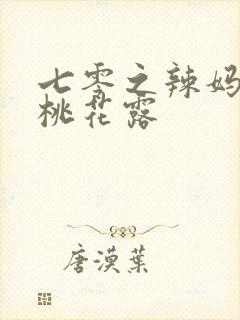 七零之辣妈
桃花露
唐漠葉